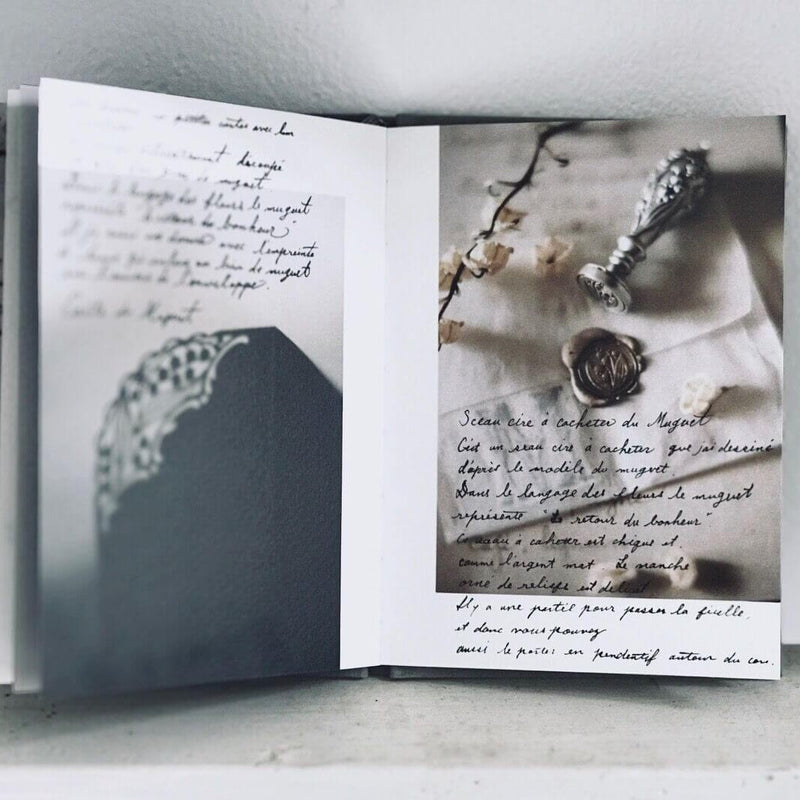 petites cartes avec un
découpé
de muguet.
Dans le langage des fleurs le muguet
représente "le retour du bonheur"
avec l'empreinte
un brin de muguet
l'enveloppe.
Carte de Muguet
Sceau cire à cacheter du Muguet
C'est un sceau cire à cacheter que j'ai dessiné
d'après le modèle du muguet.
Dans le langage des fleurs le muguet
représente "Le retour du bonheur"
Ce sceau à cacheter est chique et
comme l'argent mat. Le manche
orné de reliefs est délicat
Il y a une partie pour passer la ficelle,
et donc vous pouvez
aussi le porter en pendentif autour du cou.